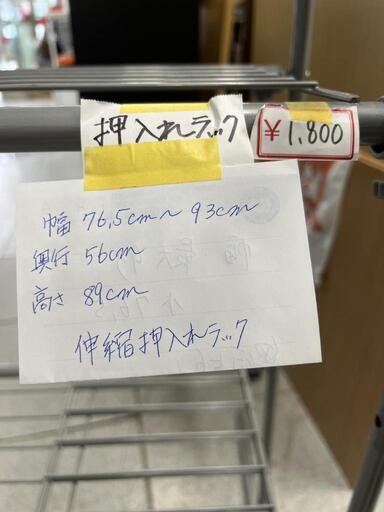 押入れラック
¥1,800
幅 76.5cm～93cm
奥行 56cm
高さ 89cm
伸縮押入れラック